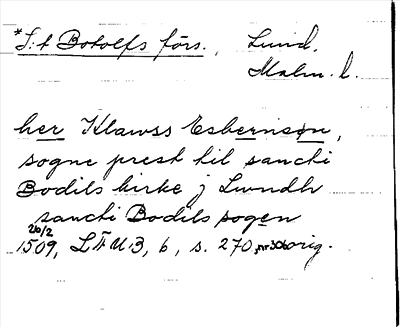 *S:t Botolfs förs., Lund,
Malm. l.
her Klawss Esbernson,
sogne prest til sancti
Bodils kirke j Lwndh
sancti Bodils sogen
26/2
1509, LÄUB, 6, s. 270, nr 306 orig.